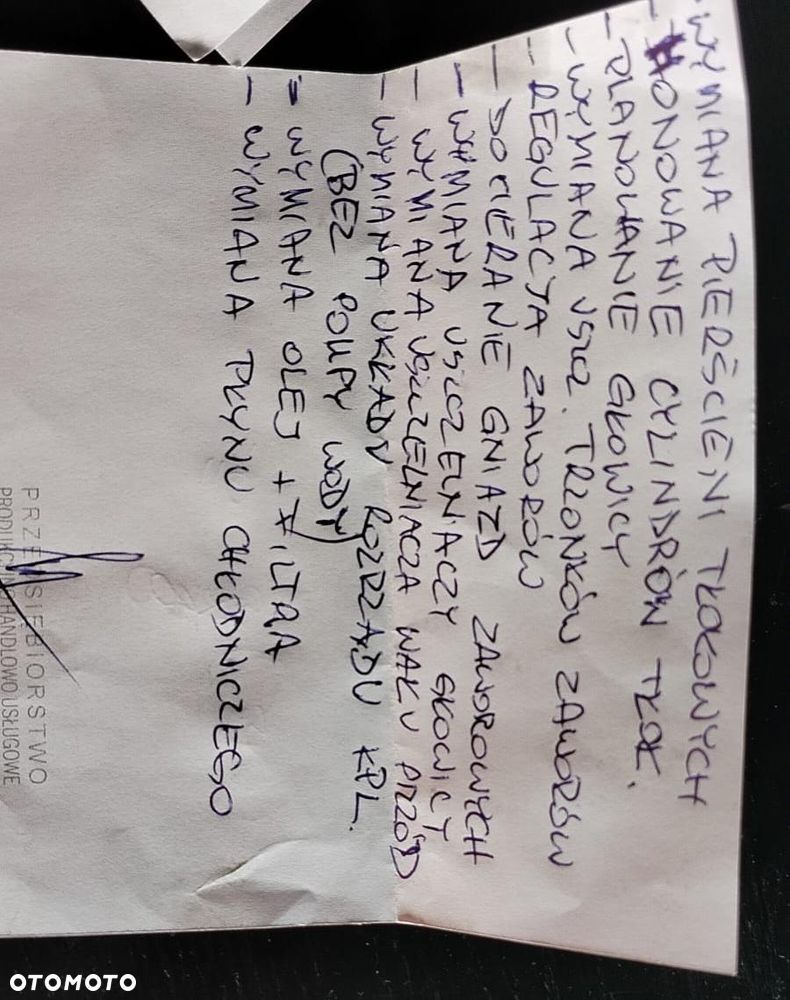 - WYMIANA PIERŚCIENI TŁOKOWYCH
- HONOWANIE CYLINDRÓW TŁOK.
- PLANOWANIE GŁOWICY
- WYMIANA USZCZ. TRZONKÓW ZAWORÓW
- REGULACJA ZAWORÓW
- DOCIERANIE GNIAZD ZAWOROWYCH
- WYMIANA USZCZELNIACZY GŁOWICY
- WYMIANA USZCZELNIACZA WAŁU PRZÓD
- WYMIANA UKŁADU ROZRZĄDU KPL.
(BEZ POMPY WODY)
- WYMIANA OLEJ + FILTRA
- WYMIANA PŁYNU CHŁODNICZEGO
PRZEDSIĘBIORSTWO
HANDLOWO USŁUGOWE
OTOMOTO